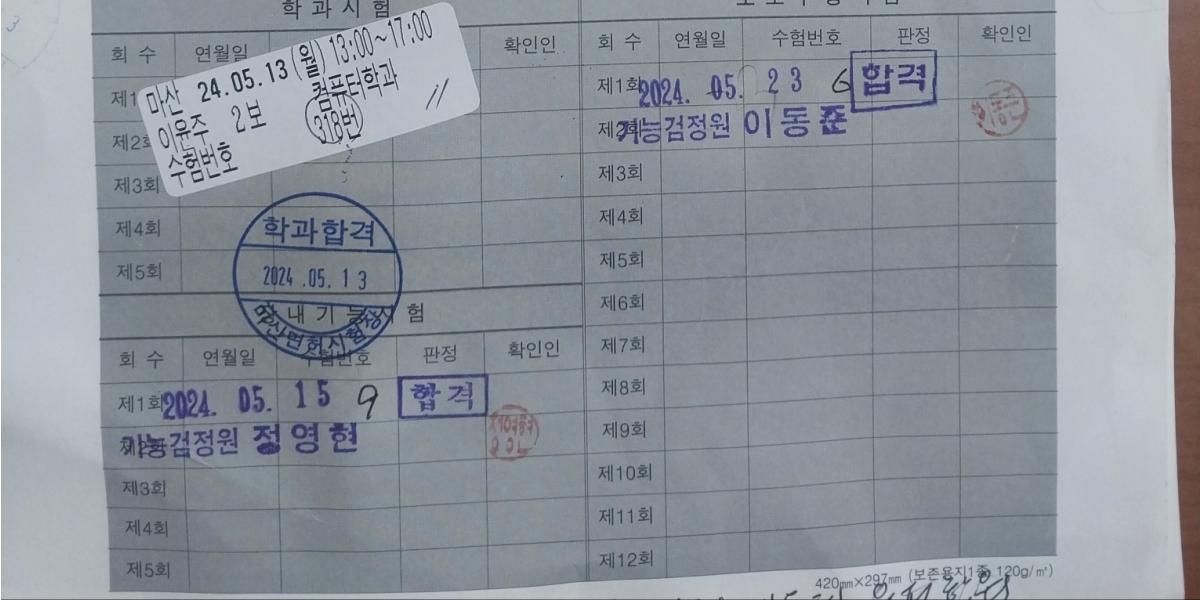 학과시험
회 수 연월일 확인인
마산 24.05.13 (월) 13:00~17:00
이윤주 2보 컴퓨터학과
수험번호 318번
제1
제2회
제3회
제4회
제5회
학과합격
2024.05.13
마산면허시험장
장내기능시험
회 수 연월일 수험번호 판정 확인인
제1회 2024. 05. 15 9 합격
제2회 기능검정원 정영현
제3회
제4회
제5회
회 수 연월일 수험번호 판정 확인인
제1회 2024. 05. 23 6 합격
제2회 기능검정원 이동준
제3회
제4회
제5회
제6회
제7회
제8회
제9회
제10회
제11회
제12회
420㎜×297㎜ (보존용지1종 120g/㎡)